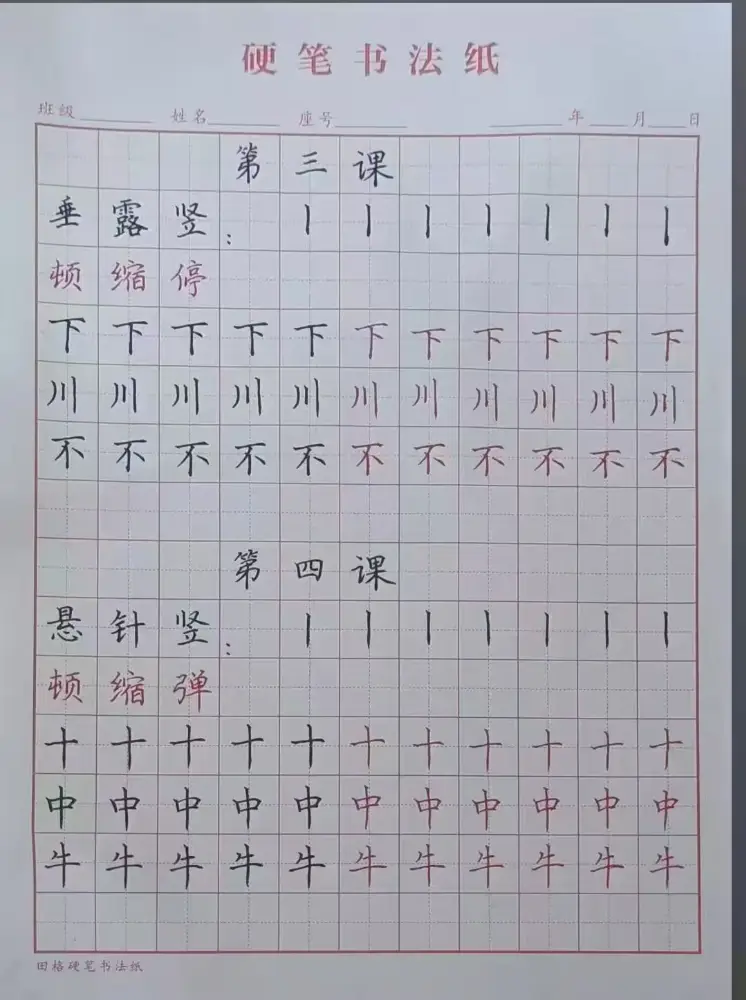 硬笔书法纸
班级 姓名 座号 年 月 日
第三课
垂露竖：丨丨丨丨丨丨丨
顿缩停
下下下下下下下下下下下
川川川川川川川川川川川
不不不不不不不不不不不
第四课
悬针竖：丨丨丨丨丨丨丨
顿缩弹
十十十十十十十十十十十
中中中中中中中中中中中
牛牛牛牛牛牛牛牛牛牛牛
田格硬笔书法纸